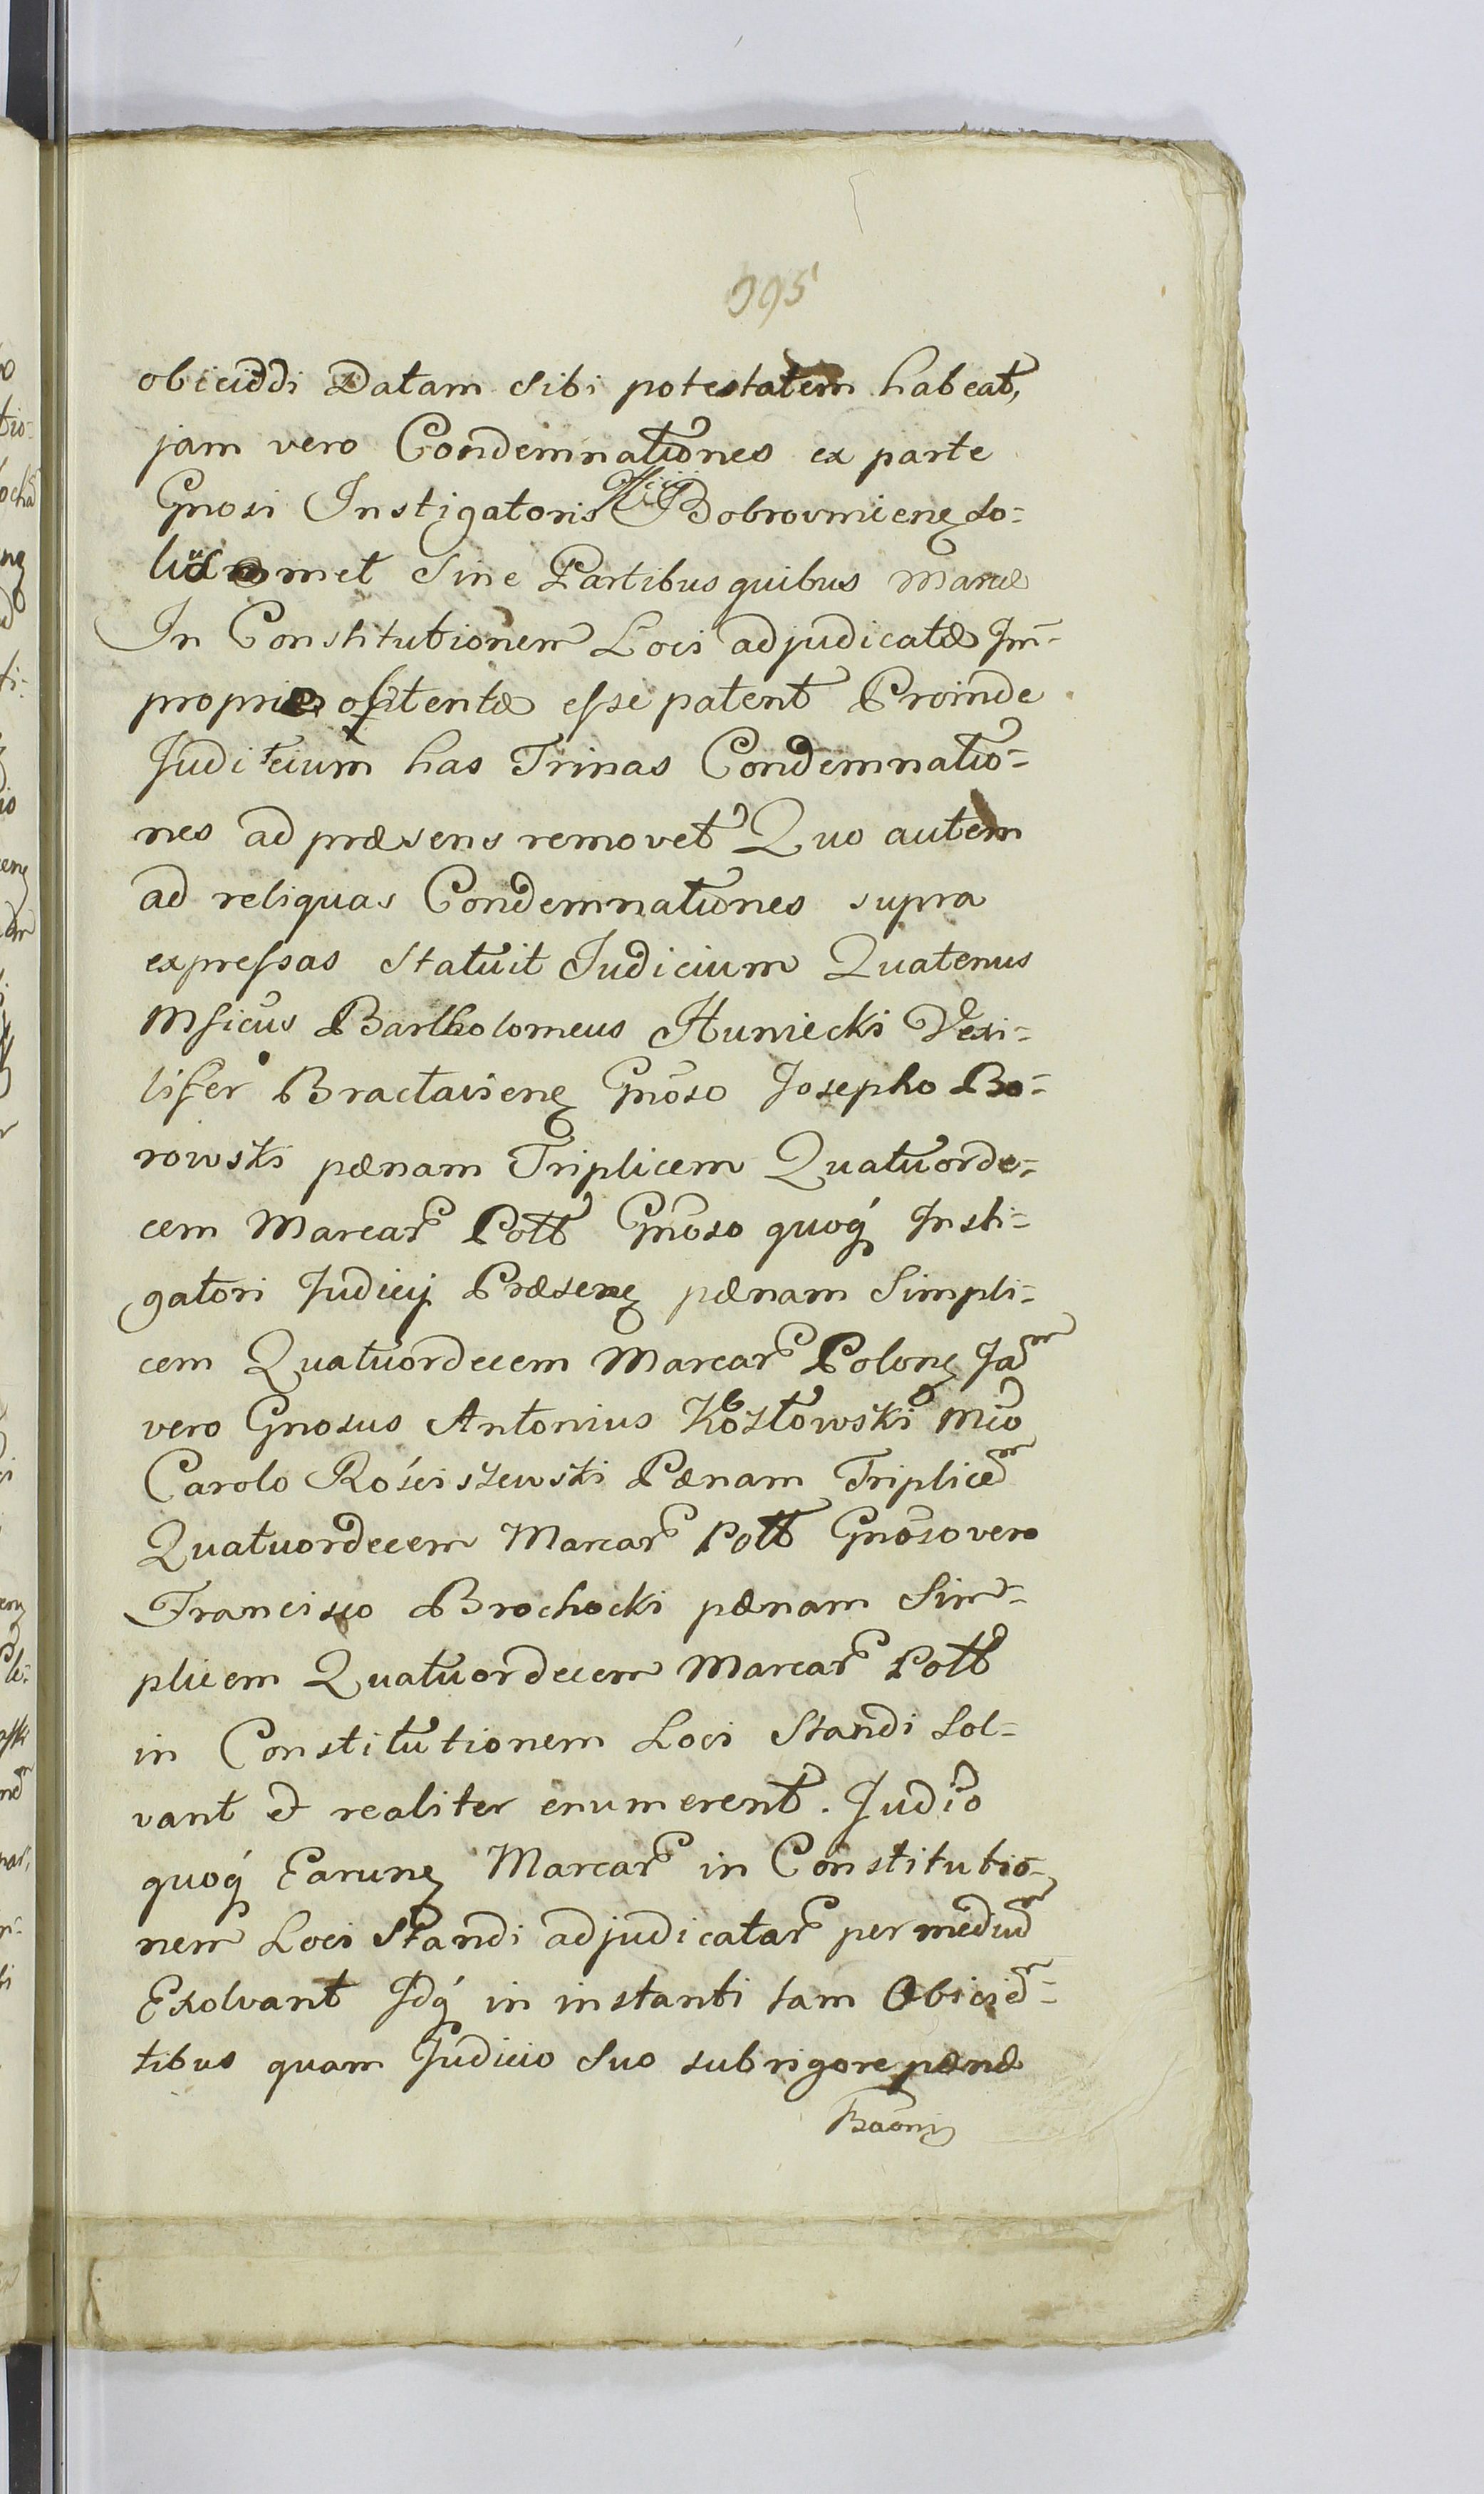 995
obiciddi Datam Sibi potestatem habeat,
jam vero Condemnationes ex parte
Gnosi Instigatoris Offcii Dobrovnicen so=
liusmet Sine Partibus quibus Marcæ
In Constitutionem Loci adjudicatæ Im=
propriæ obtentæ eſse patent Proinde
Juditcium has Trinas Condemnatio=
nes ad præsens removet Quo autem
ad reliquas Condemnationes supra
expreſsas Statuit Judicium Quatenus
Mficus Bartholomeus Huniecki Vexi=
lifer Bractavien Gnoso Josepho Bo=
rowski pænam Triplicem Quatuorde=
cem Marcar Poll Gnoso quoq́ Insti=
gatori Judicij Præsen pænam Simpli=
cem Quatuordecem Marcar Polon Jam
vero Gnosus Antonius Kozłowski Mco
Carolo Rościszewski Pænam Triplicem
Quatuordecem Marcar Poll Gnoso vero
Francisco Brochocki pænam Sim=
plicem Quatuordecem Marcar Poll
in Constitutionem Loci Standi Sol=
vant et realiter enumerent. Judio
quoq́ Earun Marcar in Constitutio=
nem Loci Standi adjudicatar per medium
Exolvant Idq́ in instanti tam Obicien=
tibus quam Judicio Suo sub rigore pænæ
Baoni